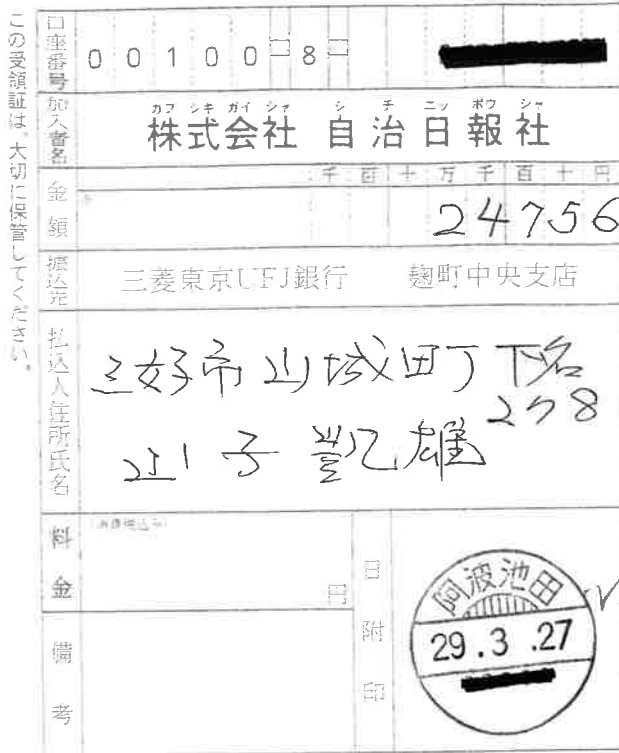 この受領証は、大切に保管してください。
口座番号 00100-8-
加入者名 カブシキガイシャ シチニッポウシャ
株式会社 自治日報社
千百十万千百十円
金額 24756
振込先 三菱東京UFJ銀行 麹町中央支店
払込人住所氏名
三好市山城町下名
278
凱雄
料金 (消費税込み) 円
備考
日附印
阿波池田
29.3.27